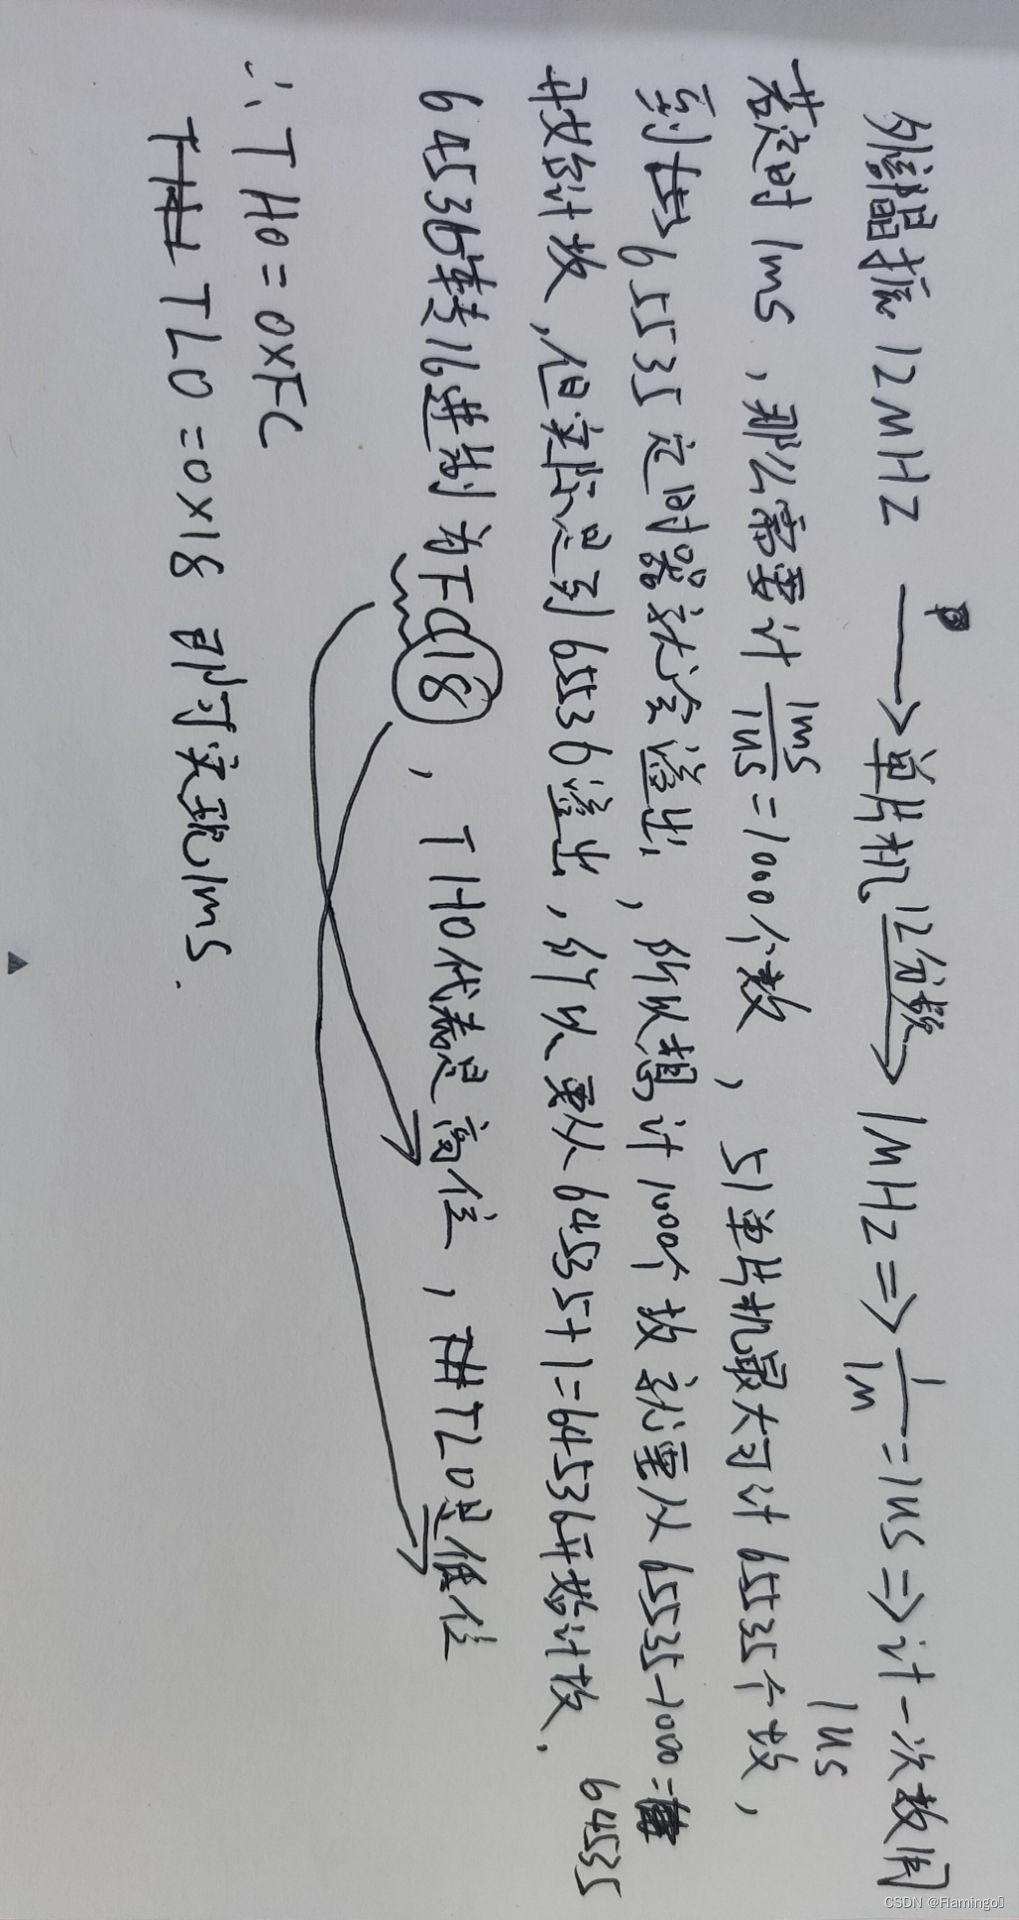 外部晶振 12MHZ → 单片机 12分频 → 1MHZ ⇒ 1/1M = 1us ⇒ 计一次数用 1us
若定时 1ms , 那么需要计 1ms/1us = 1000个数 , 51单片机最大可计 65535个数 ,
到 65535 定时器就会溢出 , 所以想计 1000个数 就要从 65535-1000= 64535
开始计数 , 但实际是到 65536溢出 , 所以要从 64535+1=64536开始计数 .
64536转16进制 为FC18 , TH0代表是高位 , TL0是低位
∴ TH0=0XFC
TL0=0X18 即可实现1ms .
CSDN @Flamingo